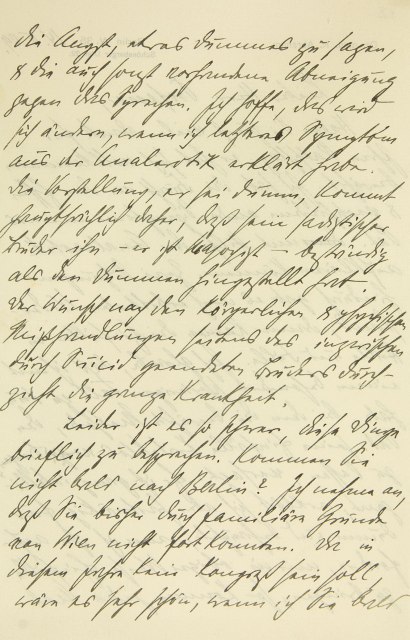 die Angst, etwas dummes zu sagen,
& die auch sonst vorhandene Abneigung
gegen das Sprechen. Ich hoffe, das wird
sich ändern, wenn ich letzteres Symptom
aus der Analerotik erklärt habe.
Die Vorstellung, er sei dumm, kommt
hauptsächlich daher, daß sein sadistischer
Bruder ihn – er ist Masochist – beständig
als den Dummen hingestellt hat.
Der Wunsch nach den körperlichen & psychischen
Mißhandlungen seitens des inzwischen
durch Suicid geendeten Bruders durch-
zieht die ganze Krankheit.
Leider ist es so schwer, diese Dinge
brieflich zu besprechen. Kommen Sie
nicht bald nach Berlin? Ich nehme an,
daß Sie bisher durch familiäre Gründe
von Wien nicht fort konnten. Da in
diesem Jahre kein Kongreß sein soll,
wäre es sehr schön, wenn ich Sie bald